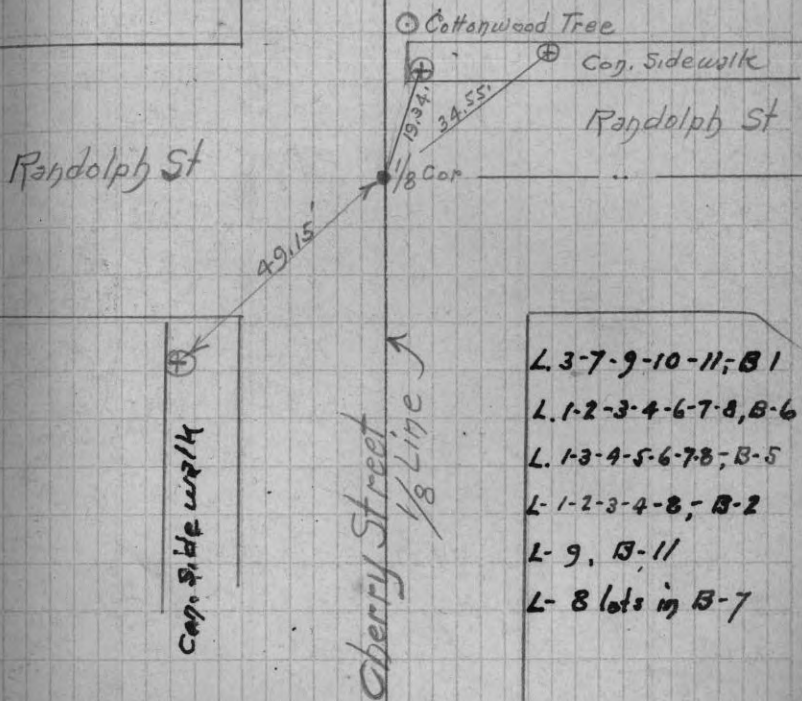 Cottonwood Tree
Con. Sidewalk
Randolph St
19.34'
34.55'
Randolph St
1/8 Cor
49.15'
Con. Sidewalk
Cherry Street
1/8 Line
L. 3-7-9-10-11, B 1
L. 1-2-3-4-6-7-8, B-6
L. 1-3-4-5-6-7-8, B-5
L- 1-2-3-4-8, B-2
L- 9, B-11
L- 8 lots in B-7